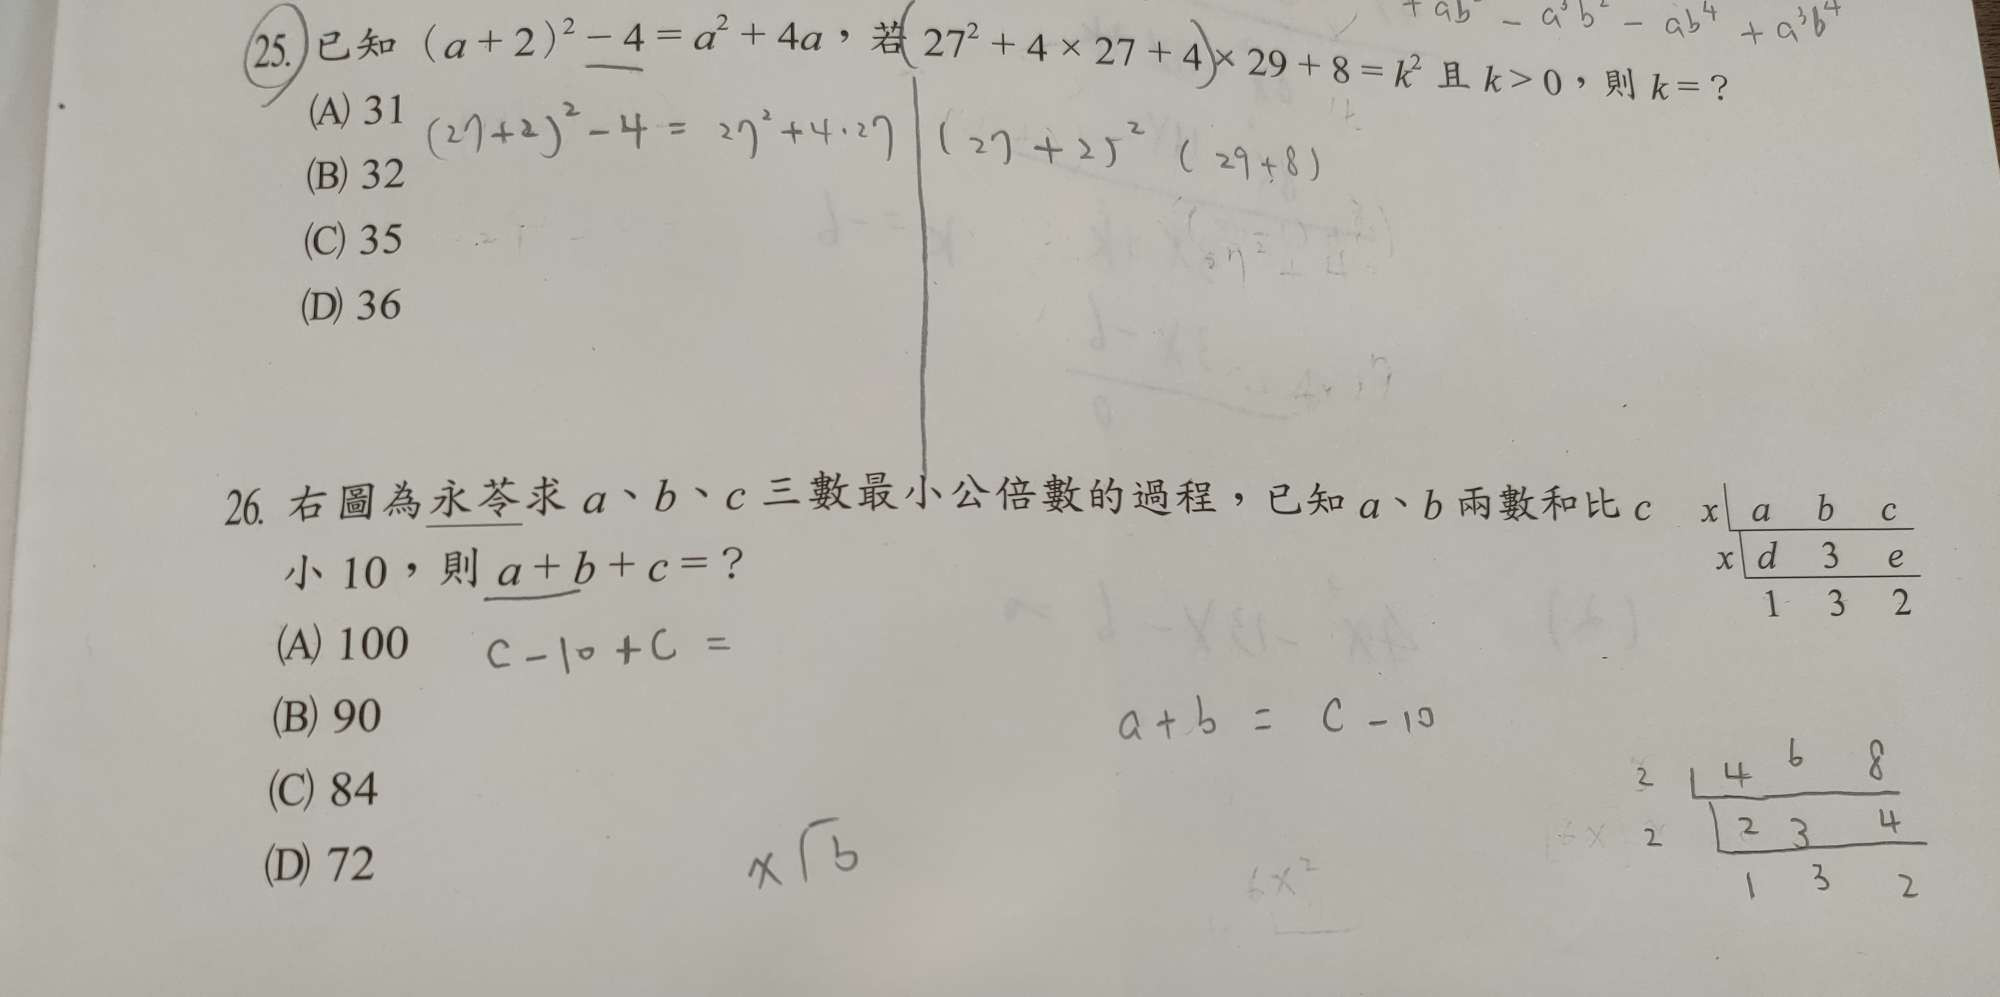 + ab - a³b² - ab⁴ + a³b⁴
25. 已知 (a+2)² - 4 = a² + 4a，若(27² + 4 × 27 + 4)× 29 + 8 = k² 且 k > 0，則 k = ?
(A) 31
(27+2)² - 4 = 27² + 4·27
(27 + 2)² (29+8)
(B) 32
(C) 35
(D) 36
26. 右圖為永苓求 a、b、c 三數最小公倍數的過程，已知 a、b 兩數和比 c
小 10，則 a + b + c = ?
x a b c
x d 3 e
1 3 2
(A) 100
c - 10 + c =
(B) 90
a + b = c - 10
(C) 84
2 4 6 8
2 2 3 4
1 3 2
(D) 72
x b
6x²